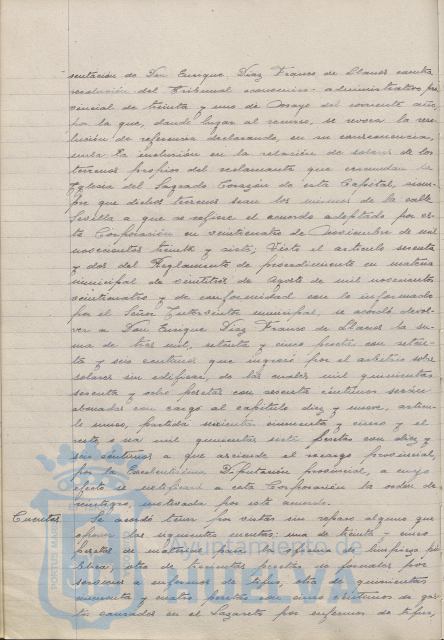 sentación de Don Enrique Díaz Franco de Llanos contra
resolución del Tribunal economico-administrativo pro
vincial de treinta y uno de Mayo del corriente año,
por la que, dando lugar al recurso, se revoca la reso
lución de referencia declarando, en su consecuencia,
nula la inclusión en la relación de solares de los
terrenos propios del reclamante que circundan la
Iglesia del Sagrado Corazón de esta Capital, siem
pre que dichos terrenos sean los mismos de la calle
Sevilla a que se refiere el acuerdo adoptado por es
ta Corporación en veinticuatro de Noviembre de mil
novecientos treinta y siete; Visto el articulo sesenta
y dos del Reglamento de procedimiento en materia
municipal de veintitres de Agosto de mil novecientos
veinticuatro y de conformidad con lo informado
por el Señor Interventor municipal, se acordó devol
ver a Don Enrique Díaz Franco de Llanos la su
ma de tres mil, setenta y cinco pesetas con seten
ta y seis centimos que ingresó por el arbitrio sobre
solares sin edificar, de las cuales mil quinientas
sesenta y ocho pesetas con sesenta céntimos serán
abonadas con cargo al capitulo diez y nueve, articu
lo unico, partida sesenta cincuenta y cinco y el
resto o sea mil quinientas siete pesetas con diez y
seis centimos a que asciende el recargo provincial,
por la Excelentísima Diputación provincial, a cuyo
efecto se notificará a esta Corporación la orden de
reintegro, motivada por este acuerdo.
Cuentas Se acordó tener por vistas sin reparo alguno que
oponer las siguientes cuentas: una de treinta y cinco
pesetas de material para la oficina de limpieza pú
blica; otra de trescientas pesetas de jornales por
servicios a enfermos de tifus; otra de quinientas
cincuenta y cuatro pesetas con cinco centimos de gas
tos causados en el Lazareto por enfermos de tifus;
Ayuntamiento de
HUELVA
PORTUS MARIS